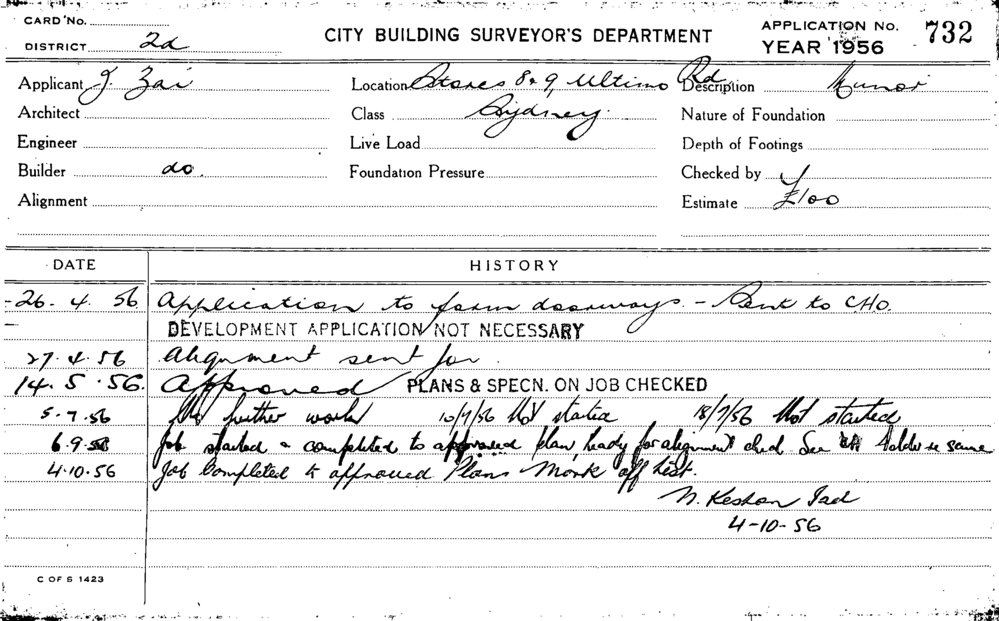 CARD No.
DISTRICT 2d
CITY BUILDING SURVEYOR'S DEPARTMENT
APPLICATION No. 732
YEAR 1956
Applicant J. Zai
Location Stores 8 & 9, Ultimo Rd
Description Minor
Architect
Class Sydney
Nature of Foundation
Engineer
Live Load
Depth of Footings
Builder do.
Foundation Pressure
Checked by
Alignment
Estimate £100
DATE HISTORY
26. 4. 56 Application to form doorways. - Sent to C.H.O.
DEVELOPMENT APPLICATION NOT NECESSARY
27. 4. 56 Alignment sent for.
14. 5. 56. Approved PLANS & SPECN. ON JOB CHECKED
5. 7. 56 further work 10/7/56 Not started 18/7/56 Not started
6. 9. 56 Job started & completed to approved plan, ready for alignment check. See re same
4. 10. 56 Job Completed to approved Plans Mark off List.
4-10-56
C OF S 1423